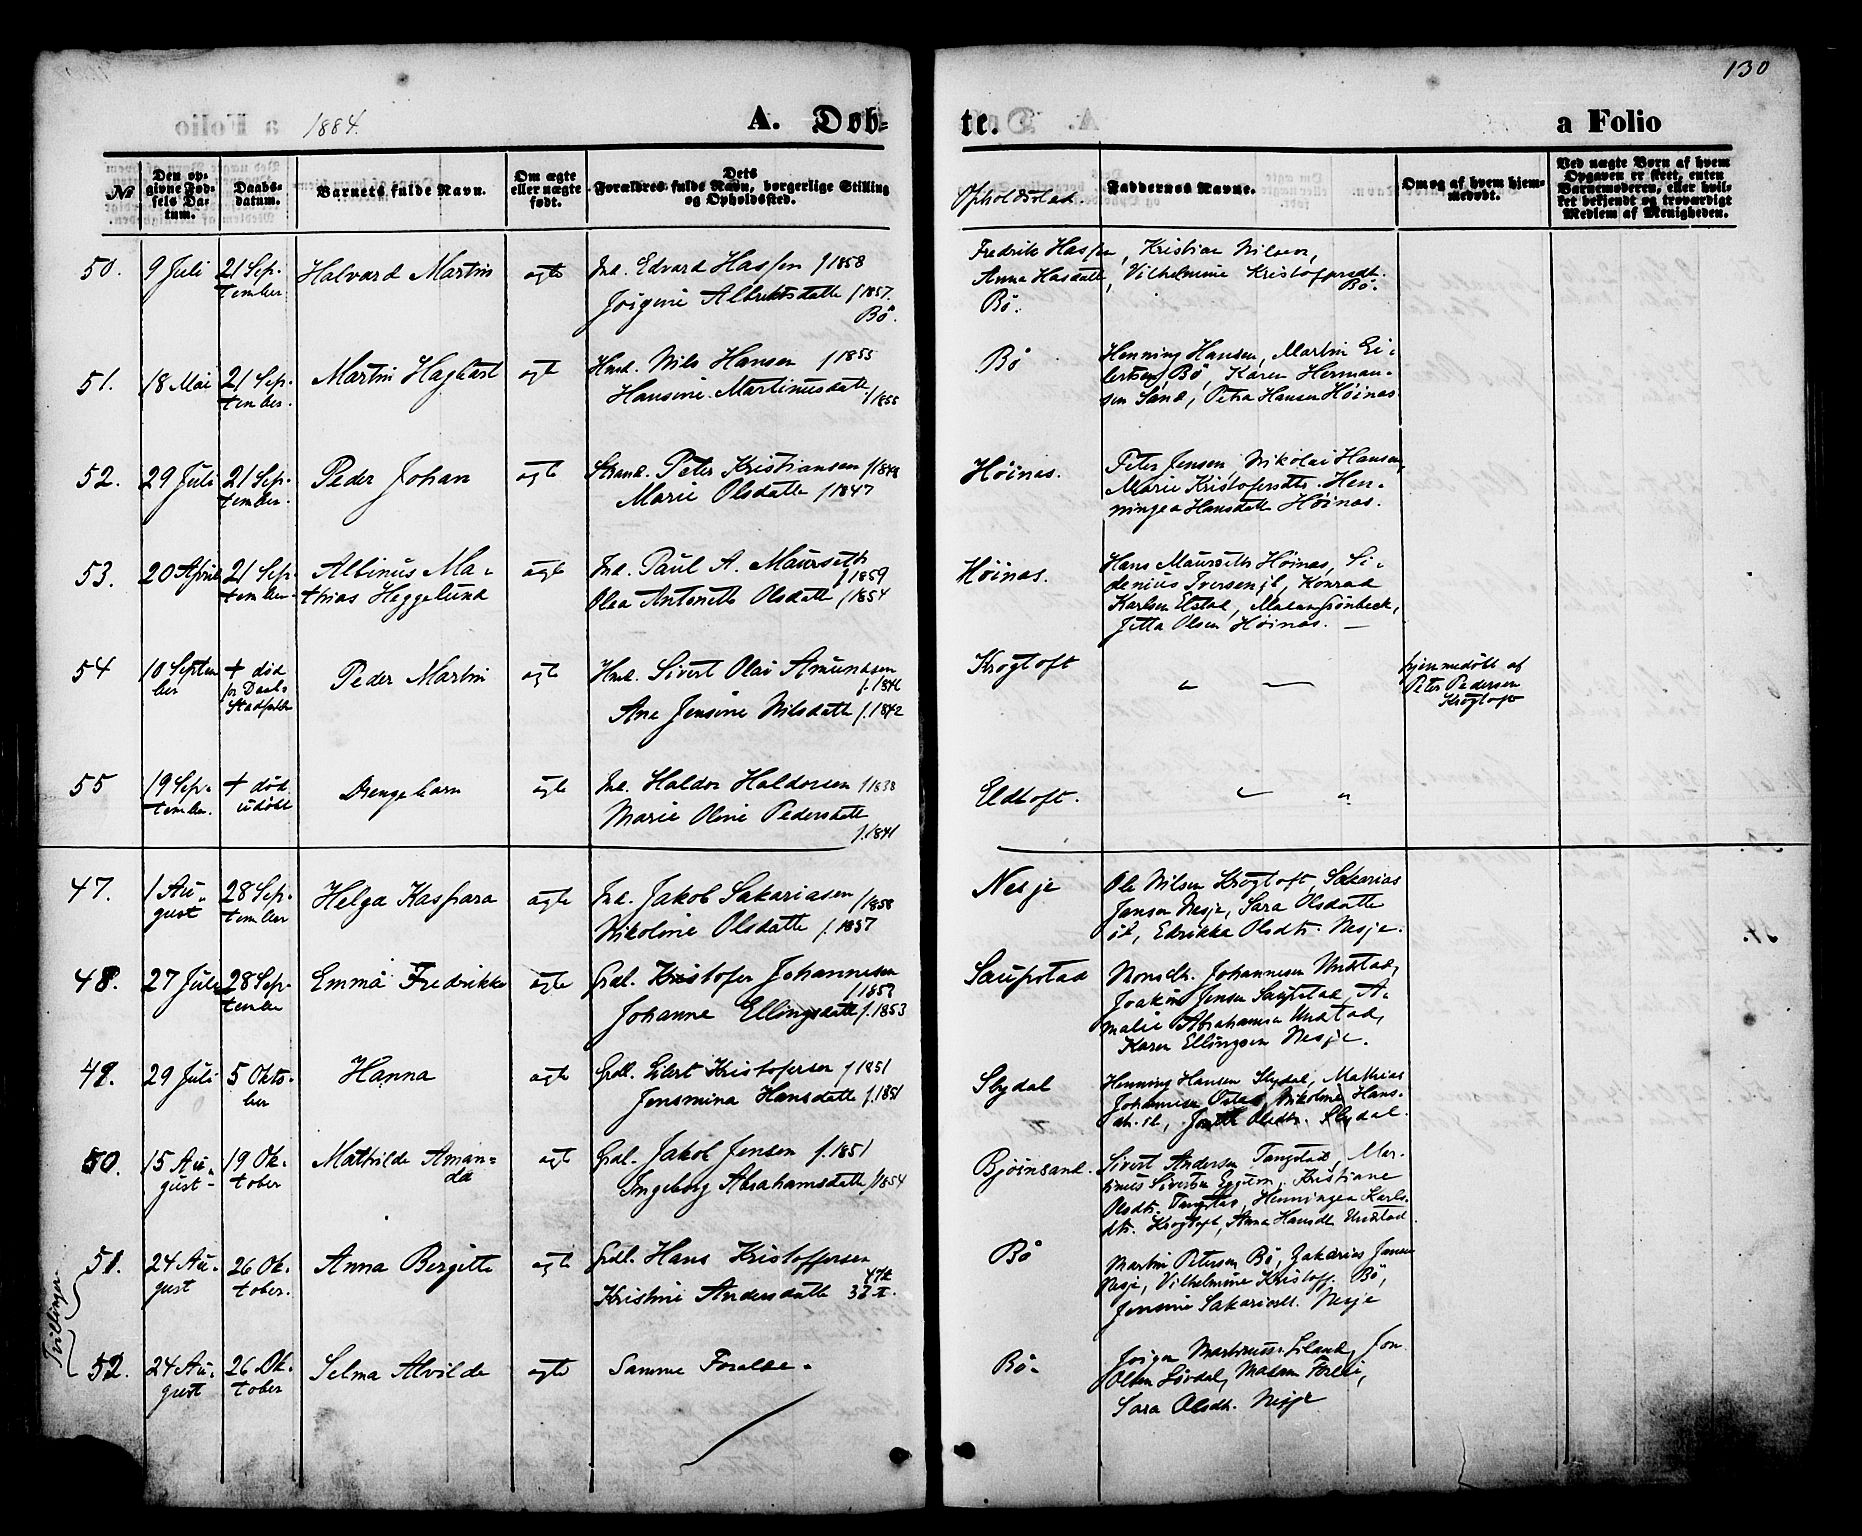 130
1884.
A. Døb-
te.
a Folio
№
Den op-
givne Fød-
sels Da-
tum.
Daabs-
datum.
Barnets fulde Navn.
Om ægte
eller uægte
født.
Dets
Forældres fulde Navn, borgerlige Stilling
og Opholdssted.
Opholdsstad.
Faddernes Navne.
Om og af hvem hjem-
medøbt.
Ved uægte Børn af hvem
Opgaven er skeet, enten
Barnemoderen, eller hvil-
ket bekjendt og troværdigt
Medlem af Menigheden.
50. 9 Juli 21 Sep-
tember Halvard Martin ægte Ind. Edvard Hassen f 1858
Jørgine Albrektsdatte f 1857.
Bø.
Fredrik Hassen, Kristian Nilsen,
Anna Hasdatte, Vilhelmine Kristoffersdt.
Bø. Bø.
51. 18 Mai 21 Sep-
tember. Martin Hagbart ægt Hmd. Nils Hansen f 1855
Hansine Martinusdatte
f 1855
Bø
Henning Hansen, Martin Ei-
lertsen, Bø, Karen Herman-
sen Sand, Petra Hansen Høinas
52. 29 Juli 21 Sep-
tember. Peder Johan ægte Strand. Peter Kristiansen
Marie Olsdatte f 1847
Høinas.
Peter Jensen, Nikolai Hansen,
Marie Kristofersdtr. Hen-
ningea Hansdatte Høinas.
53. 20 April 21 Sep-
tember Albinus Ma-
thias Heggelund ægte Ind. Paul A. Maurseth
f 1859
Olea Antonette Olsdatte f 1854
Høinas.
Hans Maurseth Høinas, Si-
denius Iversen, Konrad
Karlsen Elstad, Madam Grønbeck,
Jetta Olsen Høinas. —
54 10 Septem
ber + død
før Daab.
Stadfestelse Peder Martin ægte Hmd. Sivert Olai Amundsen
Ane Jensine Nilsdatte f. 1842
Krogtoft
" —
hjemmedøbt af
Peter Pedersen
Krogtoft
55 19 Sep-
tember. + død
udøbt Drengebarn ægte Ind. Haldor Haldorsen f 1838
Marie Oline Pedersdatte
f. 1841
Eldtoft.
" "
47. 1 Au-
gust 28 Sep-
tember Helga Kaspara ægte Ind. Jakob Sakariasen f 1858
Nikoline Olsdatte f. 1857
Nesje
Ole Nilsen Krogtoft, Sakarias
Jensen Nesje, Sara Olsdatte
st, Edrikka Olsdtr. Nesje.
48. 27 Juli 28 Sep-
tember Emma Fredrikke ægte Grdl. Kristofer Johannesen
Johanne Ellingsdatte f. 1853
Saupstad
Monsdtr. Johannesen Unstad,
Joakim Jensen Saupstad, A-
malie Abrahamsen Unstad,
Karen Ellingsen Nesje.
49. 29 Juli 5 Okto-
ber Hanna ægte Grdl. Eilert Kristofersen f 1851
Jensmina Hansdatte f. 1851
Slydal
Henning Hansen Slydal, Mathias
Johannesen Nikoline Hans-
dtr. st, Olsdtr. Slydal.
50. 15 Au-
gust- 19 Ok-
tober Mathilde Aman-
da ægte Grdl. Jakob Jensen f. 1851
Ingeborg Abrahamsdatte f 1854
Bjørnsand.
Sivert Andersen Tangstad, Mar-
tinus Sivertsen Eggum, Kristiane
Olsdtr. Tangstad, Henningea Karls-
dtr. Krogtoft, Anna Hansdt. Unstad
Tvillinger
51. 24 Au-
gust 26 Ok-
tober. Anna Bergitte ægte Grdl. Hans Kristoffersen
Kristine Andersdatte
Bø
Martin Petersen Bø, Zakarias Jensen
Nesje, Vilhelmine Kristoff. Bø,
Jensine Sakariasdt. Nesje
52. 24 Au-
gust 26 Ok-
tober Selma Alvilde ægte Samme Forældre.
Bø.
Jørgen Martinus. Eiland, Jon
Olsen Løvdal, Madam Forlie,
Sara Olsdtr. Nesje